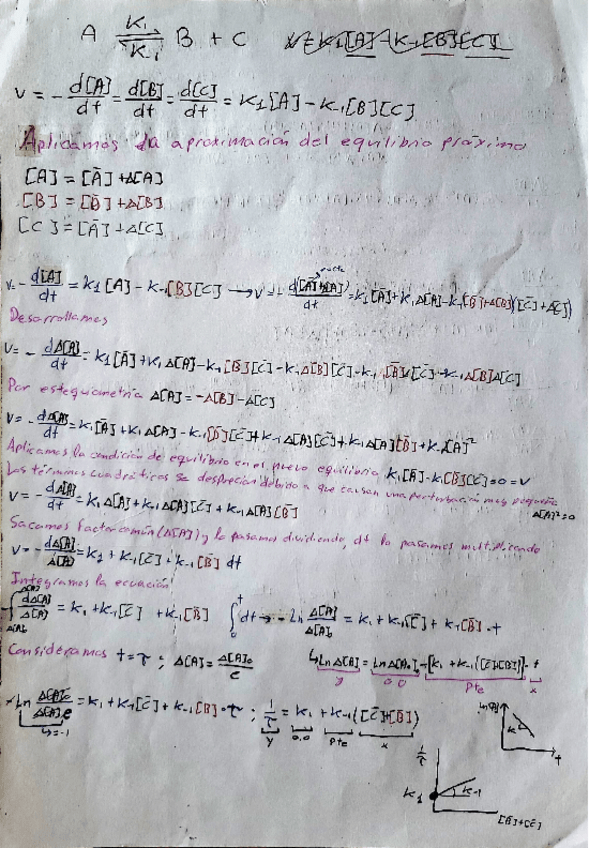 A ⇌ B + C   K₁   K₋₁   v = K₁[A] - K₋₁[B][C]
v = - d[A]/dt = d[B]/dt = d[C]/dt = K₁[A] - K₋₁[B][C]
Aplicamos la aproximación del equilibrio próximo
[A] = [Ā] + Δ[A]
[B] = [B̄] + Δ[B]
[C] = [Ā] + Δ[C]
v = - d[A]/dt = K₁[A] - K₋₁[B][C] → v = - d([Ā]+Δ[A])/dt = K₁[Ā] + K₁Δ[A] - K₋₁([B̄]+Δ[B])([C̄]+Δ[C])
Desarrollamos
v = - dΔ[A]/dt = K₁[Ā] + K₁Δ[A] - K₋₁[B̄][C̄] - K₋₁Δ[B][C̄] - K₋₁ Δ[B]Δ[C]
Por estequiometría Δ[A] = -Δ[B] - Δ[C]
v = - dΔ[A]/dt = K₁[Ā] + K₁Δ[A] - K₋₁[B̄][C̄] + K₋₁Δ[A][C̄] + K₋₁Δ[A][B̄] + K₋₁[A]²
Aplicamos la condición de equilibrio en el nuevo equilibrio K₁[Ā] - K₋₁[B̄][C̄] = 0 = v
Los términos cuadráticos se desprecian debido a que causan una perturbación muy pequeña Δ[A]² = 0
v = - dΔ[A]/dt = K₁Δ[A] + K₋₁Δ[A][C̄] + K₋₁Δ[A][B̄]
Sacamos factor común (Δ[A]) y lo pasamos dividiendo, dt lo pasamos multiplicando
v = - dΔ[A]/Δ[A] = K₁ + K₋₁[C̄] + K₋₁[B̄] dt
Integramos la ecuación
- ∫ dΔ[A]/Δ[A] = K₁ + K₋₁[C̄] + K₋₁[B̄] ∫₀ᵗ dt → - Ln Δ[A]/Δ[A]₀ = K₁ + K₋₁[C̄] + K₋₁[B̄]·t
Consideramos t = τ ; Δ[A] = Δ[A]₀/e   ↳ Ln Δ[A] = Ln Δ[A]₀ - [K₁ + K₋₁([C̄]+[B̄])]·t
y   o.o   Pte   x
- Ln Δ[A]₀/Δ[A]₀e = K₁ + K₋₁[C̄] + K₋₁[B̄]·τ ; 1/τ = K₁ + K₋₁([C̄]+[B̄])
↳ = -1   y   o.o   Pte   x
K   t
1/τ
K₁   K₋₁
[B̄]+[C̄]